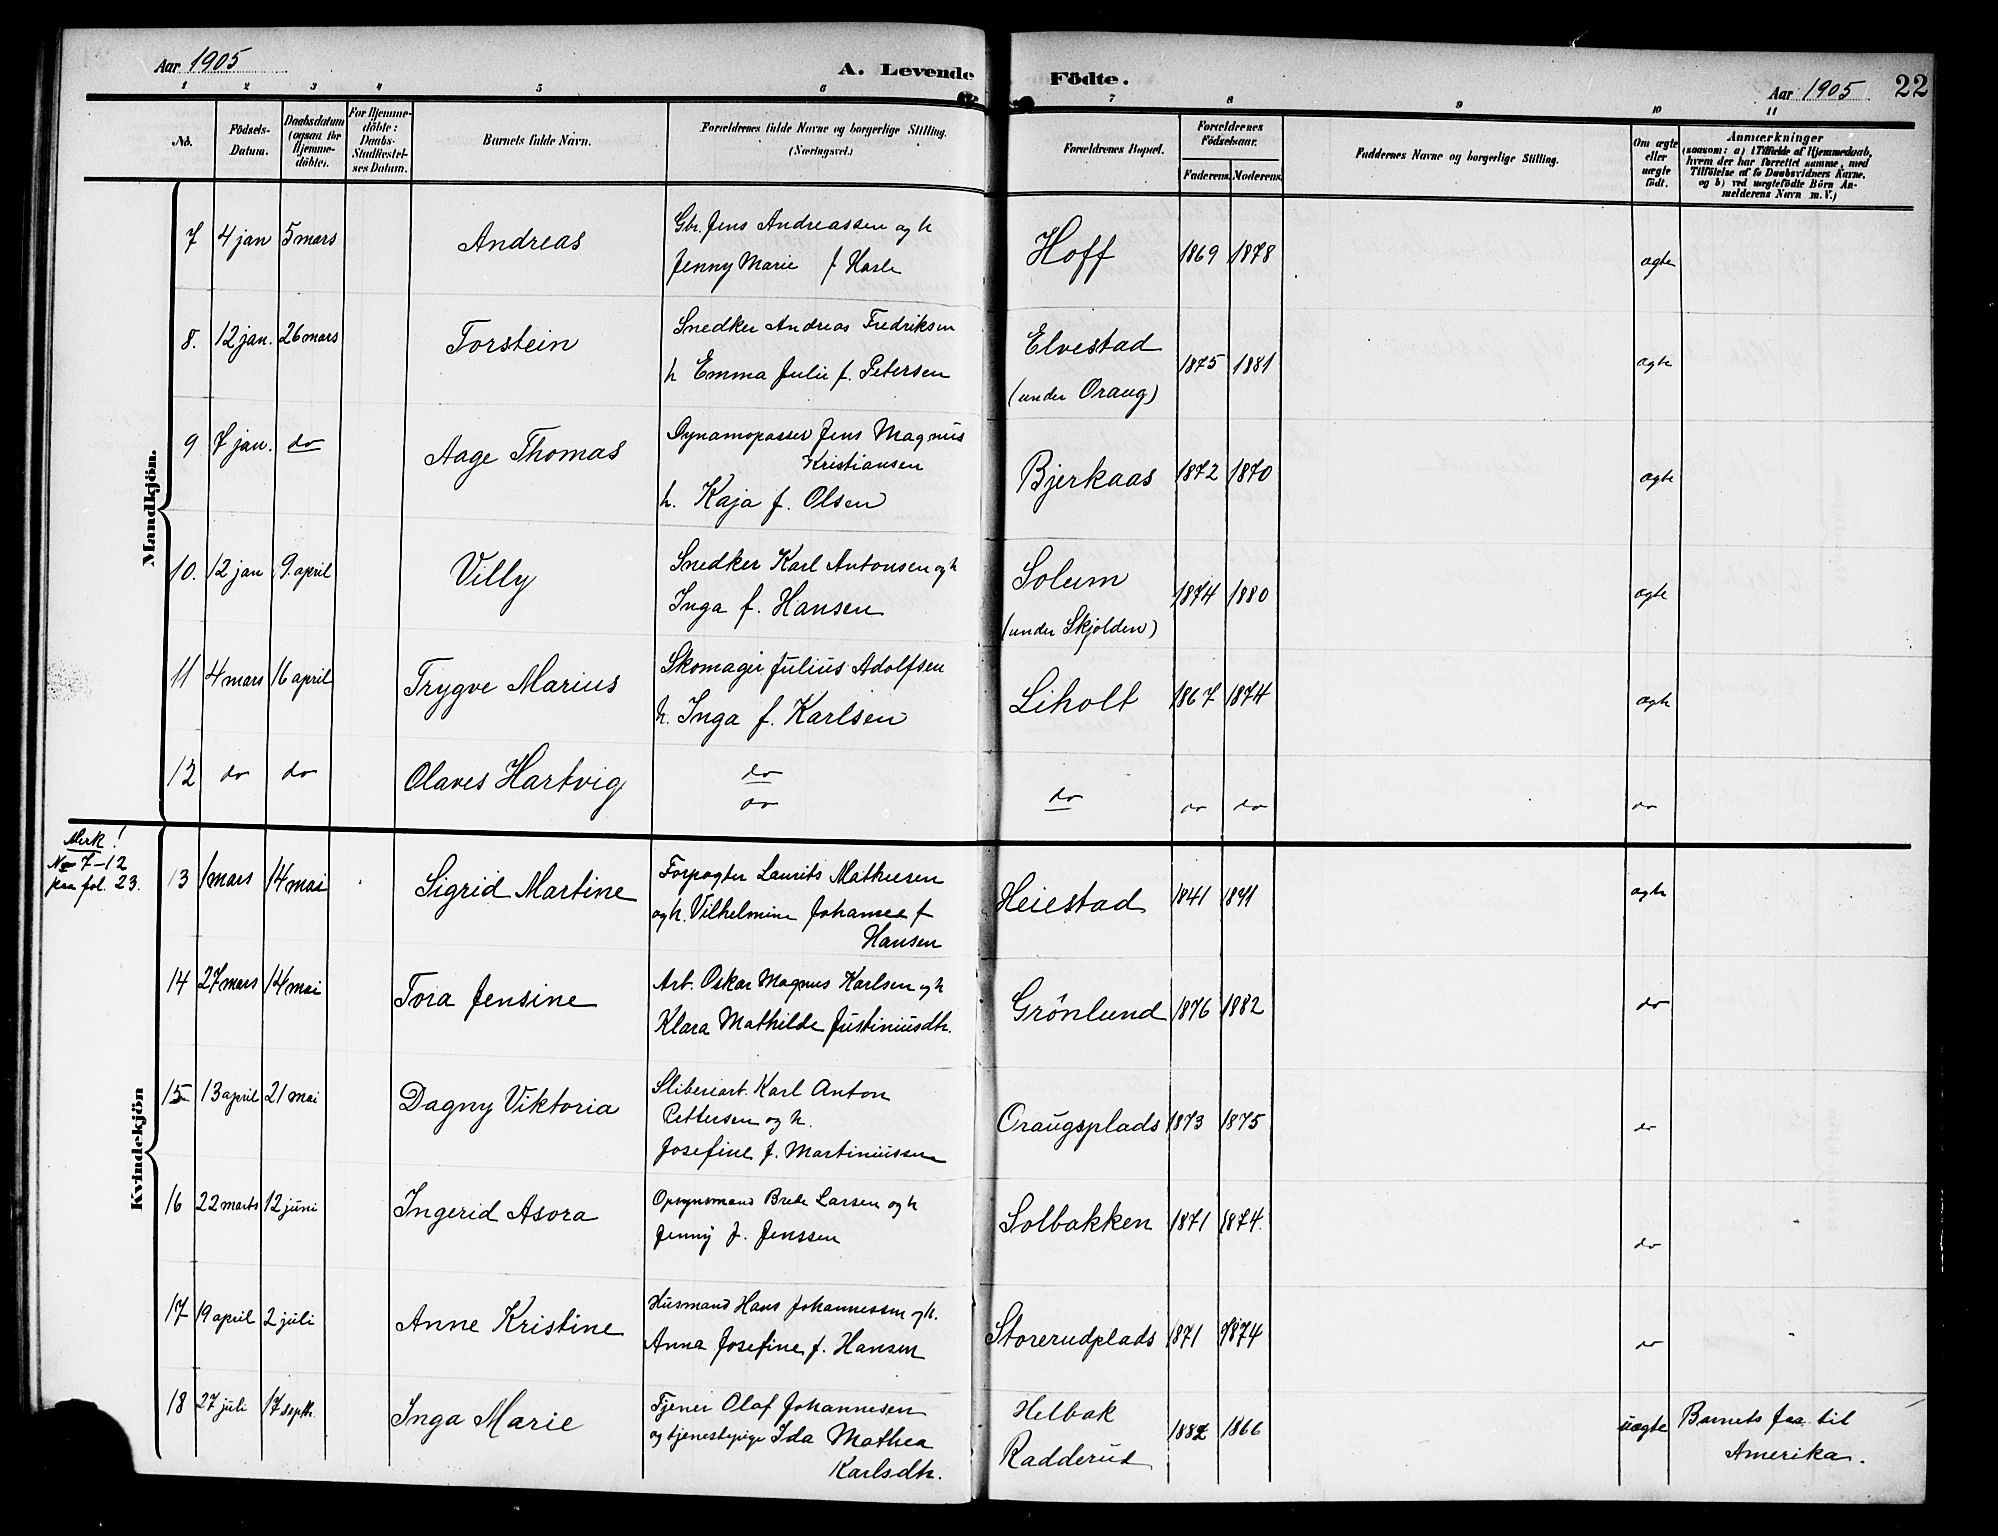 Aar 1905
A. Levende Födte.
Aar 1905
22
1 2 3 4 5 6 7 8 9 10 11
No.
Födsels-
Datum.
Daabsdatum
(ogsaa for
Hjemme-
döbte).
For Hjemme-
döbte:
Daabs-
Stadfæstel-
ses Datum.
Barnets fulde Navn.
Forældrenes fulde Navne og borgerlige Stilling.
(Næringsvei.)
Forældrenes Bopæl.
Forældrenes
Födselsaar.
Faderens. Moderens.
Faddernes Navne og borgerlige Stilling.
Om ægte
eller
uægte
födt.
Anmærkninger
(saasom: a) i Tilfælde af Hjemmedaab,
hvem der har forrettet samme, med
Tilföielse af to Daabsvidners Navne,
og b) ved uægtefödte Börn An-
melderens Navn m. V.)
Mandkjön.
7 4 jan 5 mars Andreas Gbr. Jens Andreassen og h
Jenny Marie f Harle
Hoff 1869 1878 ægte
8. 12 jan. 26 mars Torstein Snedker Andreas Fredriksen
h Emma Julie f. Petersen
Elvestad
(under Oraug)
1875 1881 ægte
9 7 jan. do Aage Thomas Dynamopasser Jens Magnus
Kristiansen
h. Kaja f. Olsen
Bjerkaas 1872 1870 ægte
10. 12 jan 9. april Villy Snedker Karl Antonsen og h
Inga f. Hansen
Solum
(under Skjolden)
1874 1880 ægte
11 4 mars 16 april Trygve Marius Skomager Julius Adolfsen
h. Inga f. Karlsen
Liholt 1867 1874 ægte
12 do do Olaves Hartvig do
do
do do do do
Merk!
No 7-12
paa fol. 23.
Kvindekjön
13 1 mars 14 mai Sigrid Martine Forpagter Laurits Mathiesen
og h. Vilhelmine Johanne f
Hansen
Heiestad 1841 ægte
14 27 mars 14 mai Tora Jensine Arb. Oskar Magnus Karlsen og h
Klara Mathilde Justiniusdtr.
Grönlund 1876 1882 do
15 13 april 21 mai Dagny Viktoria Sliberiarb. Karl Anton
Pettersen og h.
Josefine f. Martiniussen
Oraugsplads 1873 1875 do
16 22 marts 12 juni Ingerid Asora Opsynsmand Brede Larsen og h
Jenny f. Jenssen
Solbakken 1871 1874. do
17 19 april 2 juli Anne Kristine Husmand Hans Johannessen og h.
Anna Josefine f. Hansen
Storerudplads 1871 1874 do
18 27 juli 17 septb. Inga Marie Tjener Olaf Johannesen
og tjenestepige Ida Mathea
Karlsdtr.
Helbak
Radderud
1882 1866 uægte Barnets far til
Amerika.